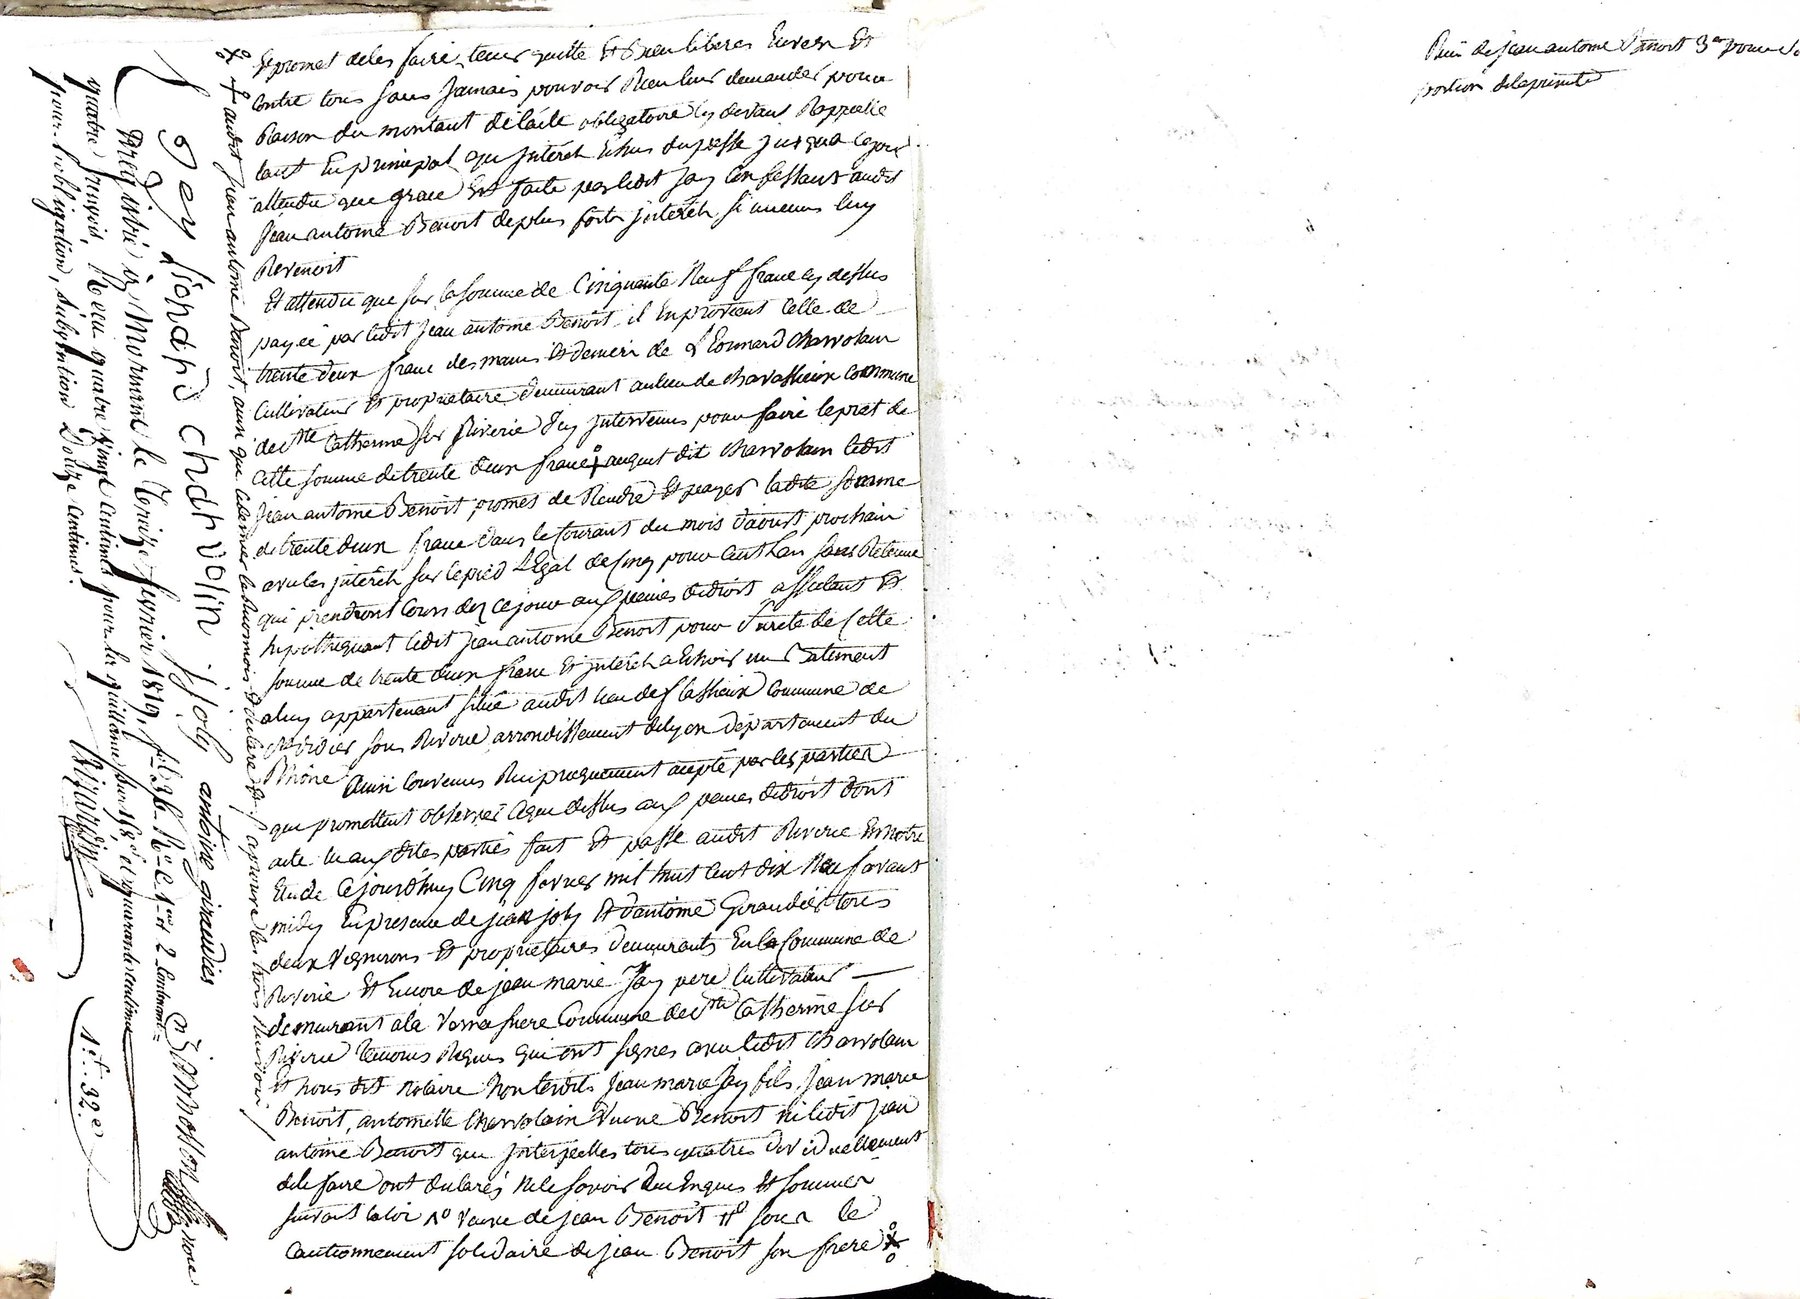 Et promet de les faire tenir quitte Et Bien liberes Envers Et
Contre tous sans Jamais pouvoir Rien leur demander pour
Raison du montant de l'acte obligatoire cy devant Rappellé
tant En principal que jntérêt Echus du passé jusqua ce jour
attendu que grace Est faite par ledit Jay Confessant audit
Jean antoine Benoit de plus forts jntérêts si aucuns luy
Revenoit
Et attendu que sur la somme de Cinquante Neuf franc cy dessus
payée par ledit Jean antoine Benoit il En provient Celle de
trente deux franc des mains Et deniers de Léonnard Charvolain
Cultivateur Et proprietaire demeurant au lieu de Chavassieux Commune
de Ste Catherine sur Riverie Jcy jntervenu pour faire le pret de
Cette somme de trente deux franc auquel dit Charvolain ledit
Jean antoine Benoit promet de Rendre Et payer ladte somme
de trente deux franc dans le Courant du mois d'aoust prochain
avec les jntérêts sur le pied Légal de Cinq pour Cent l'an sans Retenue
qui prendront Cours dez ce jour aux peines de droit affectant Et
hipothéquant ledit Jean antoine Benoit pour Sureté de Cette
somme de trente deux franc Et jntérêt a Echoir un Batiment
a luy appartenant situé audit lieu de Commune de
St Didier sous Riverie arrondissement de Lyon département du
Rhône Ainsi Convenu Reciproquement accepté par les parties
qui promettent observer Ce que dessus aux peines de droit dont
acte lu aux dites parties fait Et passé audit Riverie En notre
Etude Cejourd'huy Cinq fevrier mil huit Cent dix Neuf avant
midy En presence de Jean joly Et d'antoine Giraudier tous
deux Vignerons Et proprietaires demeurants En la Commune de
Riverie Et Encore de Jean marie Jay pere Cultivateur
demeurant a la Commune de Ste Catherine sur
Riverie Témoins Requis qui ont signés avec ledit Charvolain
Et nous dit Notaire Non lesdits Jean marie Jay fils, Jean marie
Benoit, antoinette Charvolain Veuve Benoit ni ledit Jean
antoine Benoit qui jnterpellés tous quatre dividuellement
de le faire ont déclarés Ne le savoir Et sommés
suivant la loi 1° Veuve de Jean Benoit 11° sous le
Cautionnement solidaire de Jean Benoit son frere
audit Jean antoine Benoit, ainsi que ce dernier le Reconnoit Et declare
J gey lionard chdrvolin j. joly antoine giraudier
Enregistré à Mornant le treize fevrier 1819,
quatre francs, Recu quatre vingt centimes pour la quittance
pour l'obligation, Subvention Douze centimes.
1.f. 32.e
Jean antoine Benoit 3e pour
portion de la presente